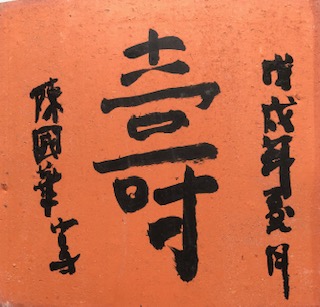 戊戌年夏月
壽
陳國華書